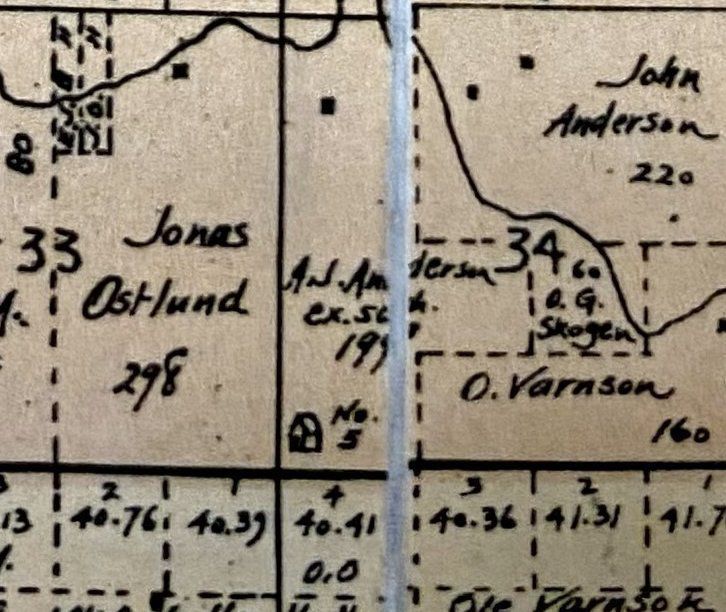 John
Anderson
220
80
33
Jonas
Ostlund
298
34
A.J. Anderson
ex. sch.
199
60
O. G.
Skogen
O. Varnson
160
No.
5
2
40.76
1
40.39
4
40.41
0.0
3
40.36
2
41.31
1
41.7
13
Ole Varnson